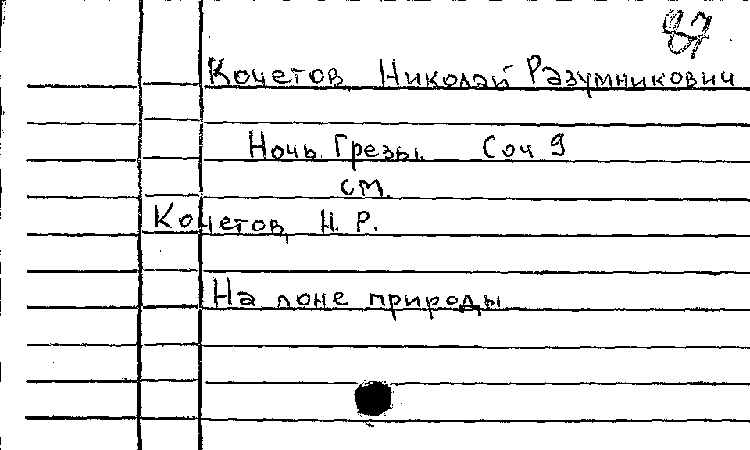 87
Кочетов Николай Разумникович
Ночь. Грезы. Соч 9
см.
Кочетов, Н. Р.
На лоне природы